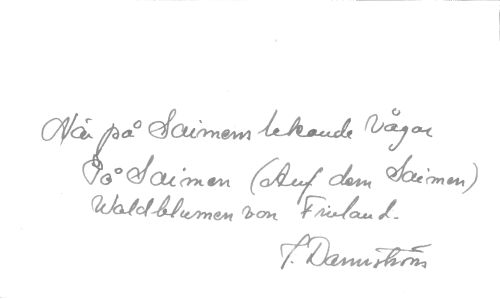 När på Saimens lekande vågor
På Saimen (Auf dem Saimen)
Waldblumen von Finland.
F. Dannström